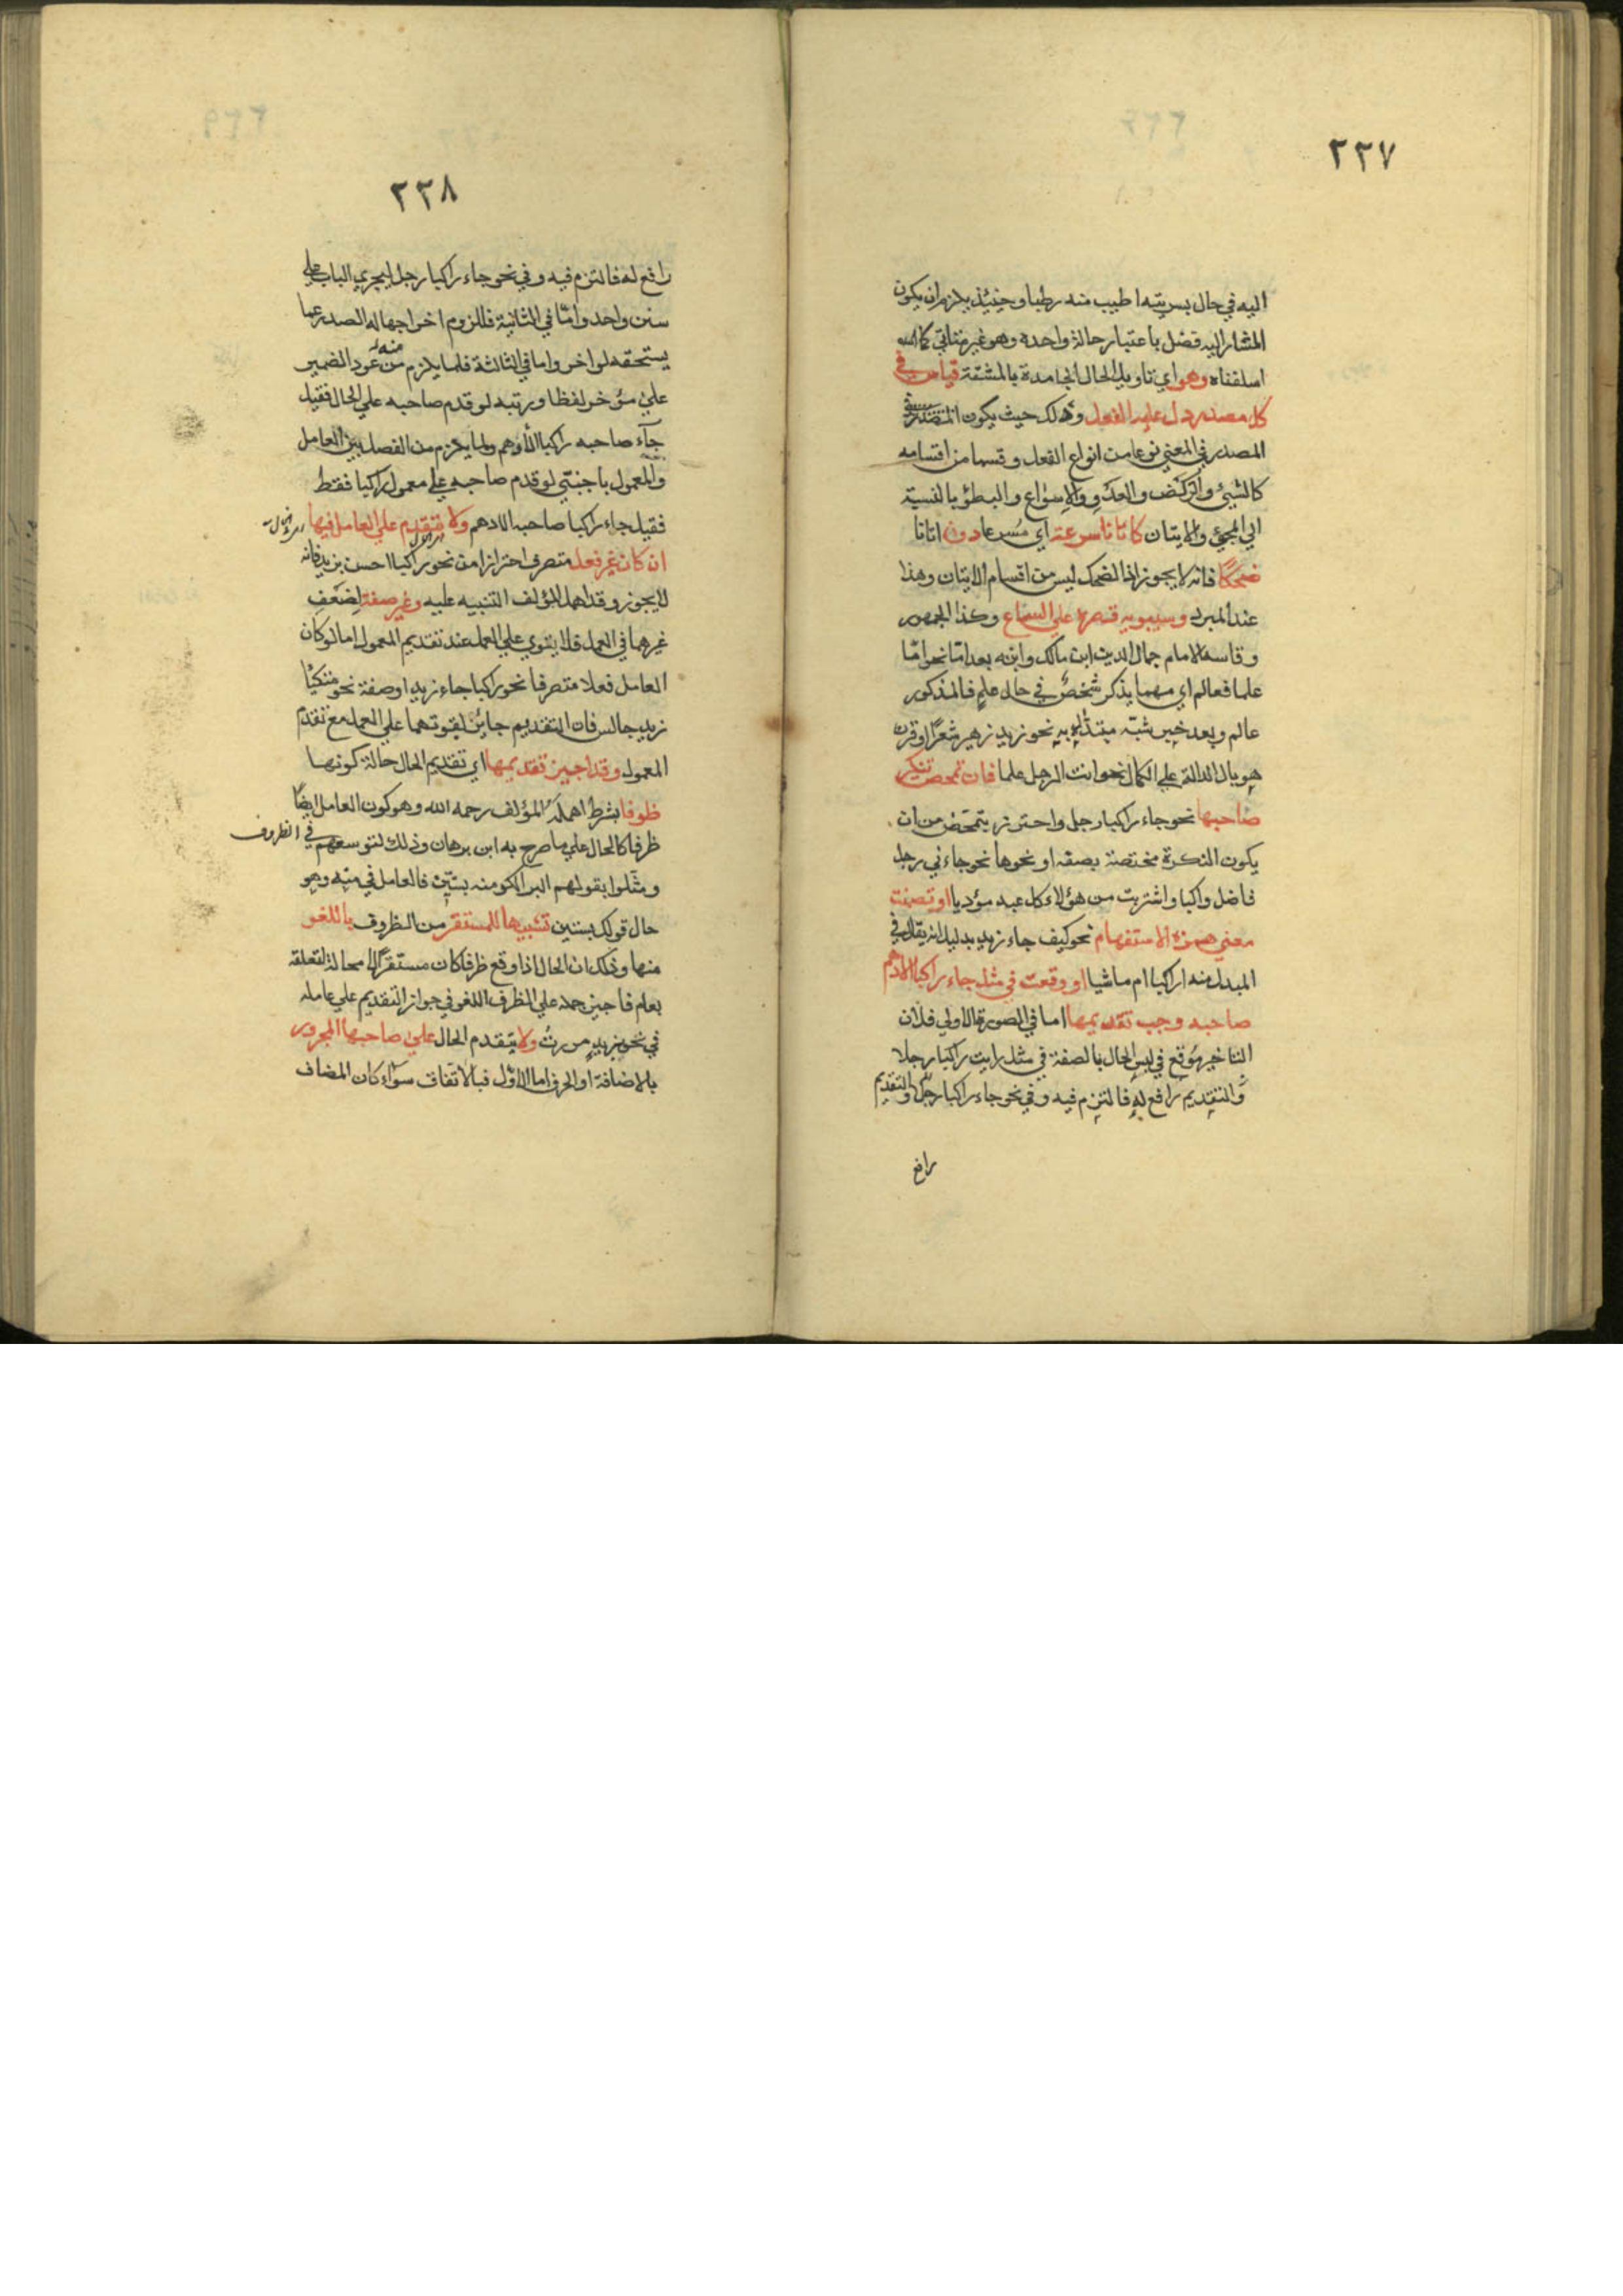 ٢٣٧
اليه في حال بسريته اطيب منه رطبا وحينئذ يلزم ان يكون
المشار اليه فضل باعتبار حالة واحدة وهو غير متاتي كما
اسلفناه وهو اي تاويل الحال الجامدة بالمشتقة قياس في
كل مصدر دل عليه الفعل وذلك حيث يكون
المصدر في المعني نوعا من انواع الفعل وقسما من اقسامه
والركض والعدو والاسراع والبطؤ بالنسبة
الي المجيء والاتيان كاتانا سرعة اي مسرعا دون اتانا
ضحكا فانه لا يجوز اذ الضحك ليس من اقسام الاتيان وهذا
عند المبرد وسيبويه قصره علي السماع وكذا الجمهور
وقاسه الامام جمال الدين ابن مالك وابنه بعد امّا نحو امّا
علما فعالم اي مهما يذكر شخص في حال علم فالمذكور
عالم وبعد خبر شبّه مبتدأه به نحو زيد زهير شعرا او قرن
هو بال الدالة علي الكمال نحو انت الرجل علما فان تمحض تنكير
صاحبها نحو جاء راكبا رجل واحترز بتمحض من ان
يكون النكرة مختصة بصفة او نحوها نحو جاءني رجل
فاضل راكبا واشتريت من هؤلاء كل عبد مؤديا او تضمنت
معني همزة الاستفهام نحو كيف جاء زيد بدليل انه يقال في
المبدل منه اراكبا ام ماشيا او وقعت في مثل جاء راكبا الادهم
صاحبه وجب تقديمها اما في الصورة الاولي فلان
التاخير موقع في لبس الحال بالصفة في مثل رايت راكبا رجلا
والتقديم رافع له فالتزم فيه وفي نحو جاء راكبا رجل والتقديم
رافع
٢٣٨
رافع له فالتزم فيه وفي نحو جاء راكبا رجل ليجري الباب علي
سنن واحد وامّا في الثانية فللزوم اخراجها له الصدر عما
يستحقه لو اخر واما في الثالثة فلما يلزم منه من عود الضمير
علي مؤخر لفظا ورتبه لو قدم صاحبه علي الحال فقيل
جاء صاحبه راكبا الادهم ولما يلزم من الفصل بين العامل
والمعمول باجنبي لو قدم صاحبه علي معمول راكبا فقط
فقيل جاء راكبا صاحبه الادهم ولا يتقدم علي العامل فيها
ان كان غير فعل متصرف احترازا من نحو راكبا احسن بزيد فانه
لا يجوز وقد اهمل المؤلف التنبيه عليه وغير صفة لضعف
غيرهما في العمل فلا يقوي علي العمل عند تقديم المعمول اما لو كان
العامل فعلا متصرفا نحو راكبا جاء زيد او صفة نحو متكئا
زيد جالس فان التقديم جايز لقوتهما علي العمل مع تقدم
المعمول وقد اجيز تقديمها اي تقديم الحال حالة كونها
ظرفا بشرط اهمله المؤلف رحمه الله وهو كون العامل ايضا
ظرفا كالحال علي ما صرح به ابن برهان وذلك لتوسعهم في الظروف
ومثلوا بقولهم البر الكر منه بستين فالعامل في منه وهو
حال قولك بستين تشبيها للمستقر من الظروف باللغو
منها وذلك ان الحال اذا وقع ظرفا كان مستقرا لا محالة لتعلقه
بعام فاجيز حمله علي الظرف اللغو في جواز التقديم علي عامله
في نحو بزيد مررت ولا يتقدم الحال علي صاحبها المجرور
بالاضافة او الحرف اما الاوّل فبالاتفاق سواء كان المضاف